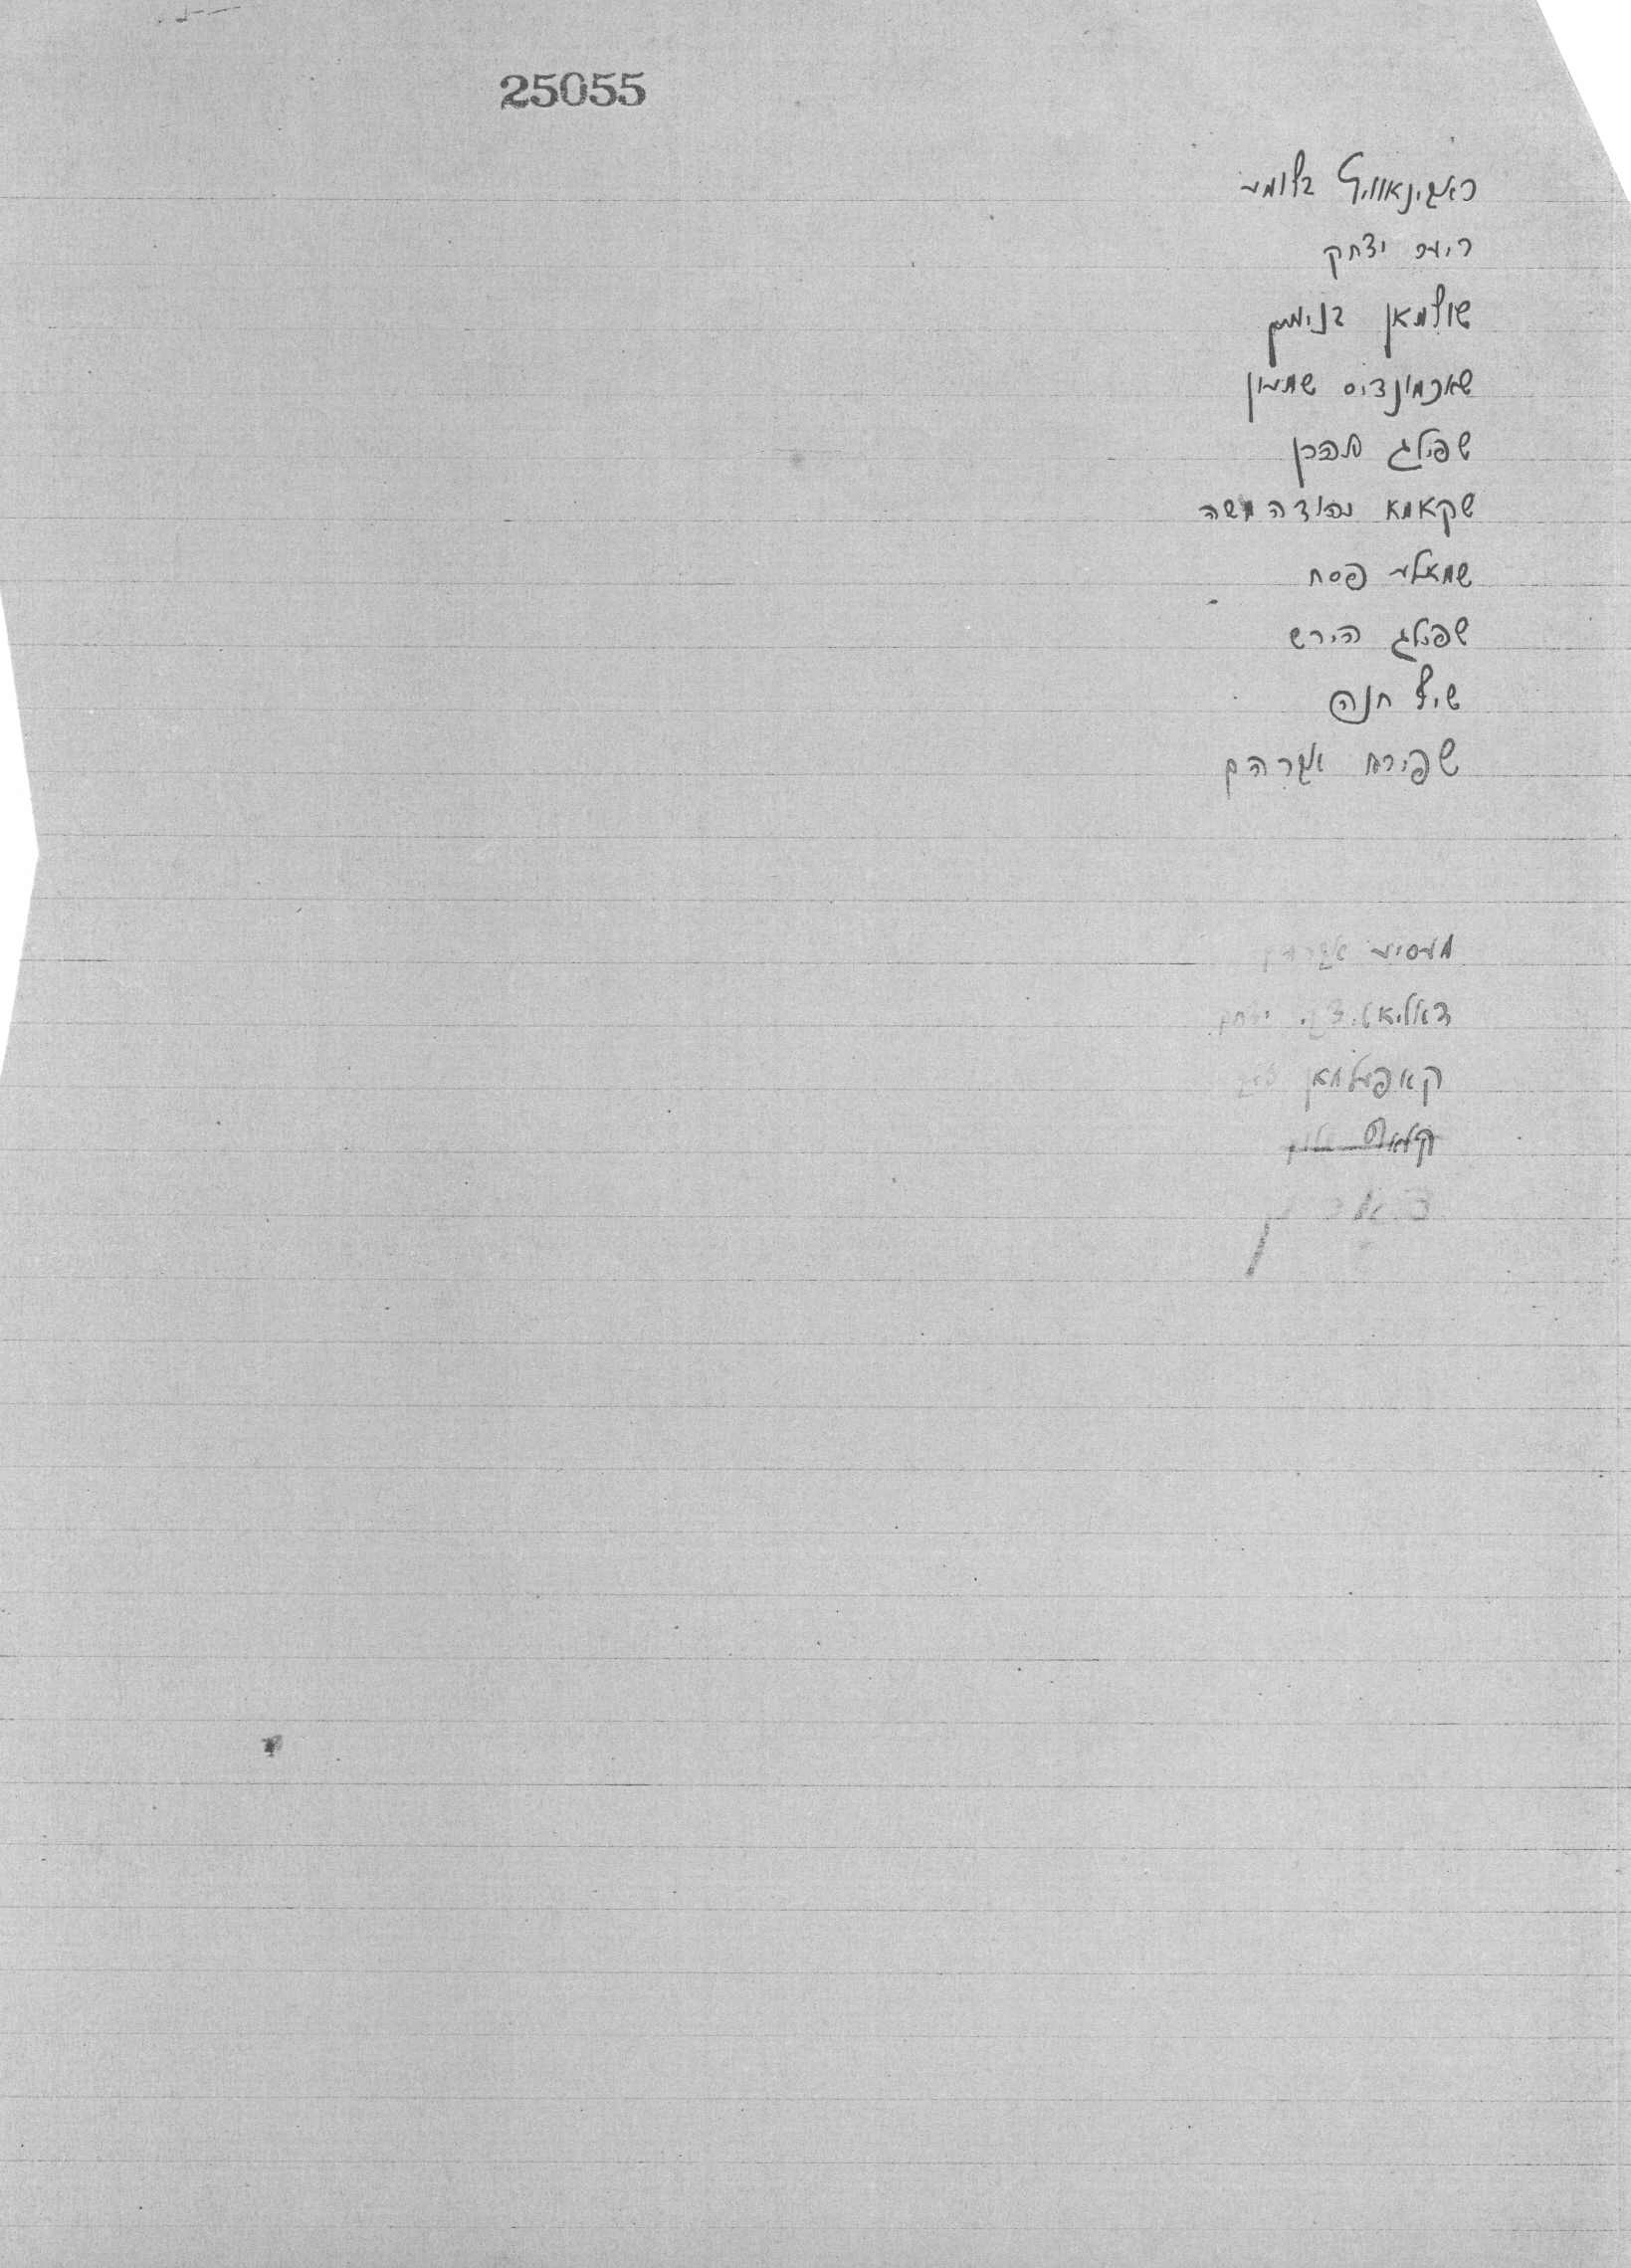 25055
ראבינאוויץ בלומע
ריער יצחק
שולמאן בנימין
שארמונדיס שמעון
שפילג אהרן
שקאמא יהודה משה
שמאלע פסח
שפילג הירש
שיף חנה
שפירא אברהם
מעסיע אברהם
יצחק
קאפעלמאן